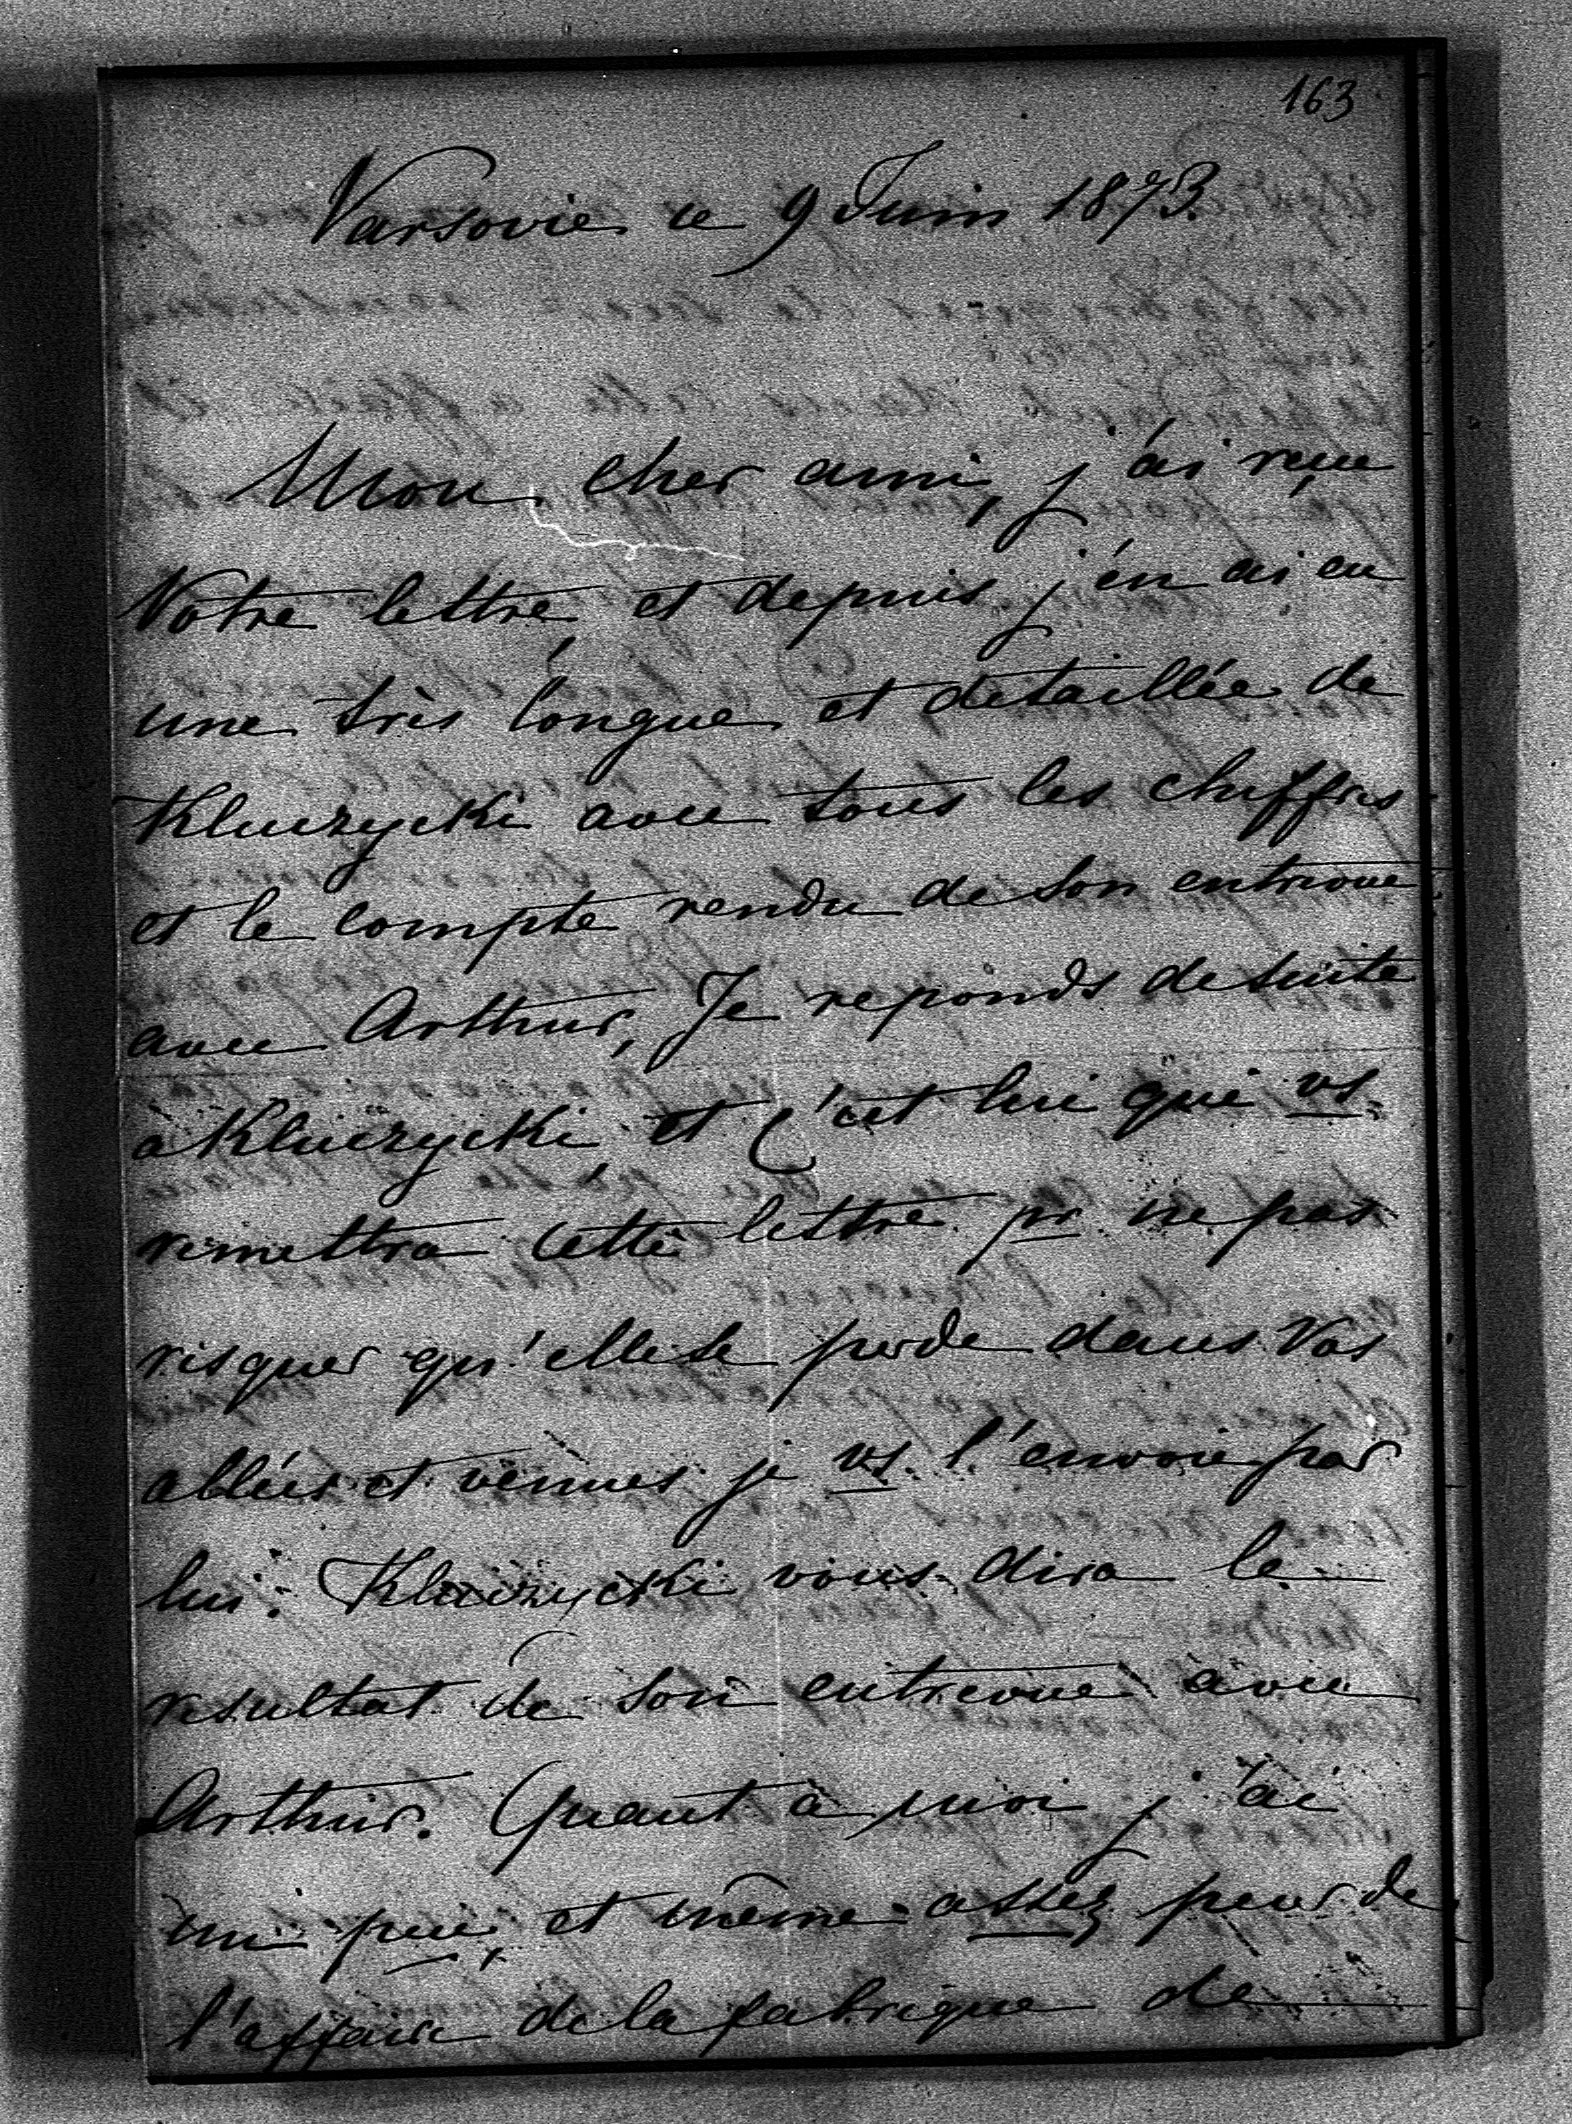 163
Varsovie ce 9 Juin 1873.
Mon cher ami, j'ai reçue
Votre lettre et depuis j'en ai eu
une très longue et detaillée de
Kluczycki avec tous les chiffres
et le compte rendu de son entrevue
avec Arthur, Je reponds de suite
a Kluczycki et C'est lui qui vs
remettra cette lettre pr ne pas
risquer qu'elle se perde dans Vos
allées et venues je vs l'envoie par
lui. Kluczycki vous dira le
resultat de son entrevue avec
Arthur. Quant à moi j'ai
un peu, et même assez peur de
l'affaire de la fabrique de